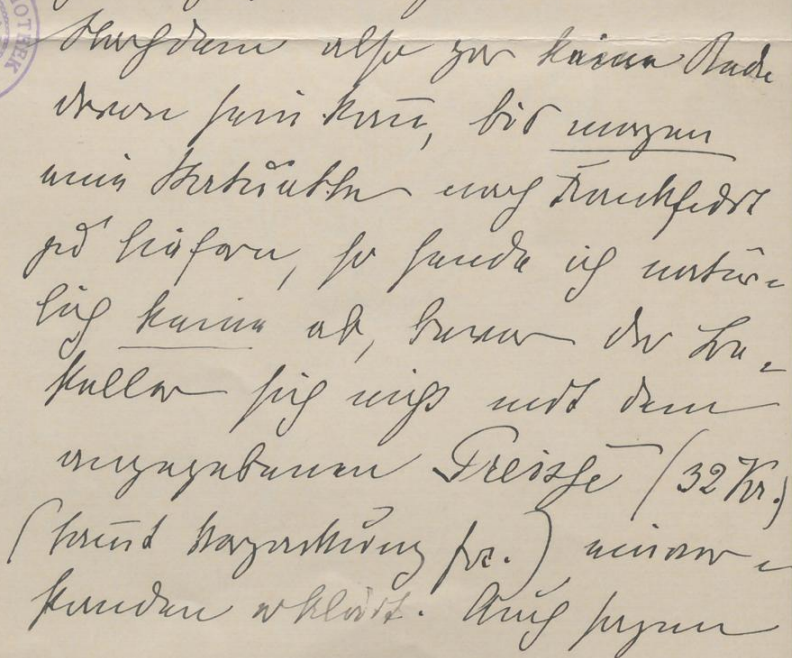 Nachdem also gar keine Rede
davon sein kann, bis morgen
eine Statuette nach Frankfurt
zu liefern, so sende ich natür-
lich keine ab, bevor der Be-
steller sich nicht mit dem
angegebenen Preise (32 Kr.)
(sammt Verpackung etc.) einver-
standen erklärt. Auch sagen